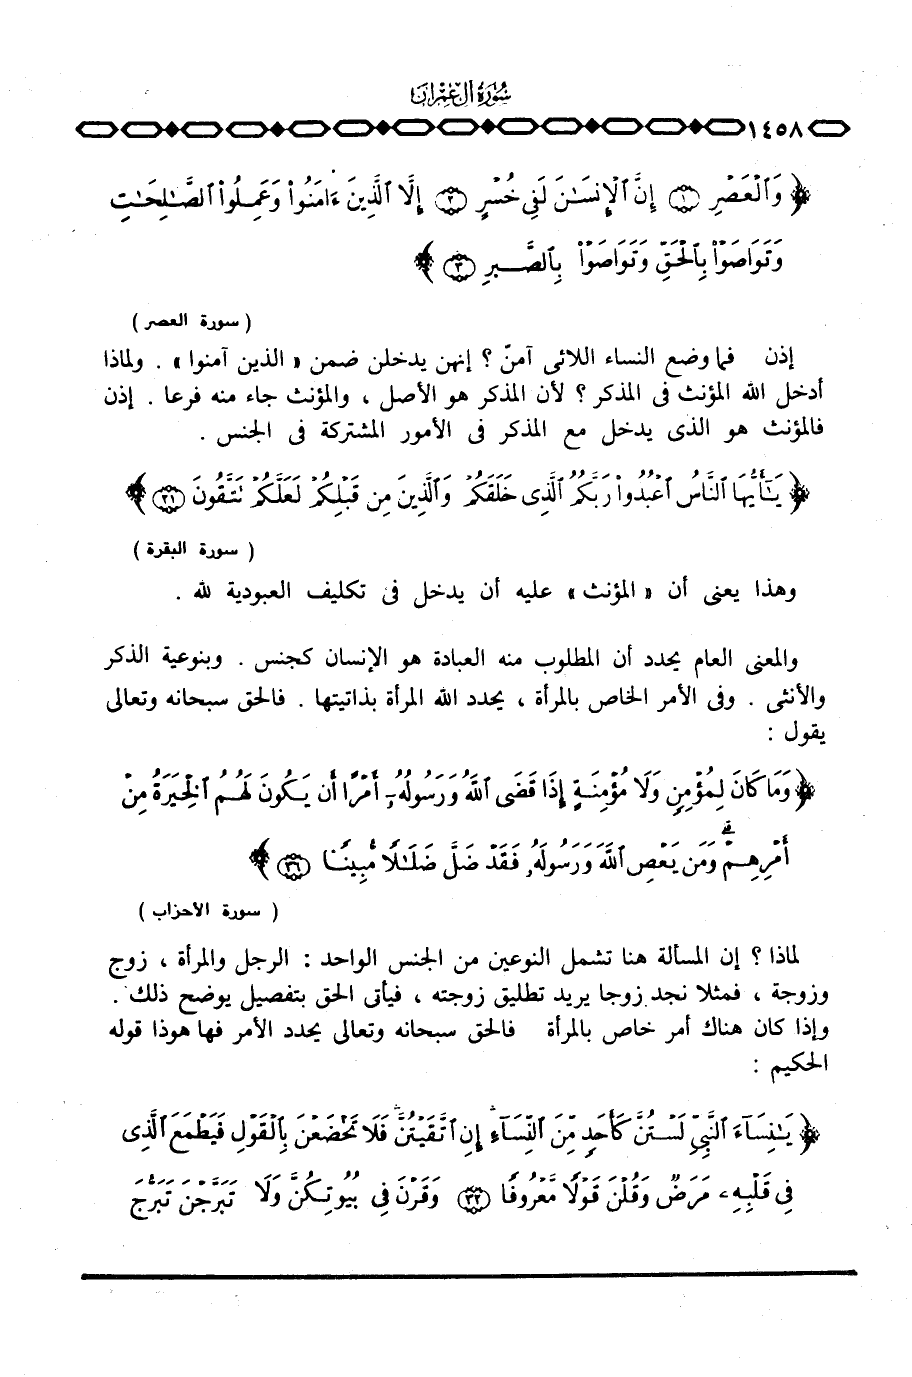 سُورَةُ آلِ عِمْرَان
١٤٥٨
﴿ وَٱلْعَصْرِ ١ إِنَّ ٱلْإِنسَٰنَ لَفِى خُسْرٍ ٢ إِلَّا ٱلَّذِينَ ءَامَنُوا۟ وَعَمِلُوا۟ ٱلصَّٰلِحَٰتِ
وَتَوَاصَوْا۟ بِٱلْحَقِّ وَتَوَاصَوْا۟ بِٱلصَّبْرِ ٣ ﴾
( سورة العصر )
إذن فما وضع النساء اللائى آمنّ ؟ إنهن يدخلن ضمن « الذين آمنوا » . ولماذا
أدخل الله المؤنث فى المذكر ؟ لأن المذكر هو الأصل ، والمؤنث جاء منه فرعا . إذن
فالمؤنث هو الذى يدخل مع المذكر فى الأمور المشتركة فى الجنس .
﴿ يَٰٓأَيُّهَا ٱلنَّاسُ ٱعْبُدُوا۟ رَبَّكُمُ ٱلَّذِى خَلَقَكُمْ وَٱلَّذِينَ مِن قَبْلِكُمْ لَعَلَّكُمْ تَتَّقُونَ ٢١ ﴾
( سورة البقرة )
وهذا يعنى أن « المؤنث » عليه أن يدخل فى تكليف العبودية لله .
والمعنى العام يحدد أن المطلوب منه العبادة هو الإنسان كجنس . وبنوعية الذكر
والأنثى . وفى الأمر الخاص بالمرأة ، يحدد الله المرأة بذاتيتها . فالحق سبحانه وتعالى
يقول :
﴿ وَمَا كَانَ لِمُؤْمِنٍ وَلَا مُؤْمِنَةٍ إِذَا قَضَى ٱللَّهُ وَرَسُولُهُۥٓ أَمْرًا أَن يَكُونَ لَهُمُ ٱلْخِيَرَةُ مِنْ
أَمْرِهِمْ ۗ وَمَن يَعْصِ ٱللَّهَ وَرَسُولَهُۥ فَقَدْ ضَلَّ ضَلَٰلًا مُّبِينًا ٣٦ ﴾
( سورة الأحزاب )
لماذا ؟ إن المسألة هنا تشمل النوعين من الجنس الواحد : الرجل والمرأة ، زوج
وزوجة ، فمثلا نجد زوجا يريد تطليق زوجته ، فيأتى الحق بتفصيل يوضح ذلك .
وإذا كان هناك أمر خاص بالمرأة فالحق سبحانه وتعالى يحدد الأمر فها هوذا قوله
الحكيم :
﴿ يَٰنِسَآءَ ٱلنَّبِىِّ لَسْتُنَّ كَأَحَدٍ مِّنَ ٱلنِّسَآءِ ۚ إِنِ ٱتَّقَيْتُنَّ فَلَا تَخْضَعْنَ بِٱلْقَوْلِ فَيَطْمَعَ ٱلَّذِى
فِى قَلْبِهِۦ مَرَضٌ وَقُلْنَ قَوْلًا مَّعْرُوفًا ٣٢ وَقَرْنَ فِى بُيُوتِكُنَّ وَلَا تَبَرَّجْنَ تَبَرُّجَ